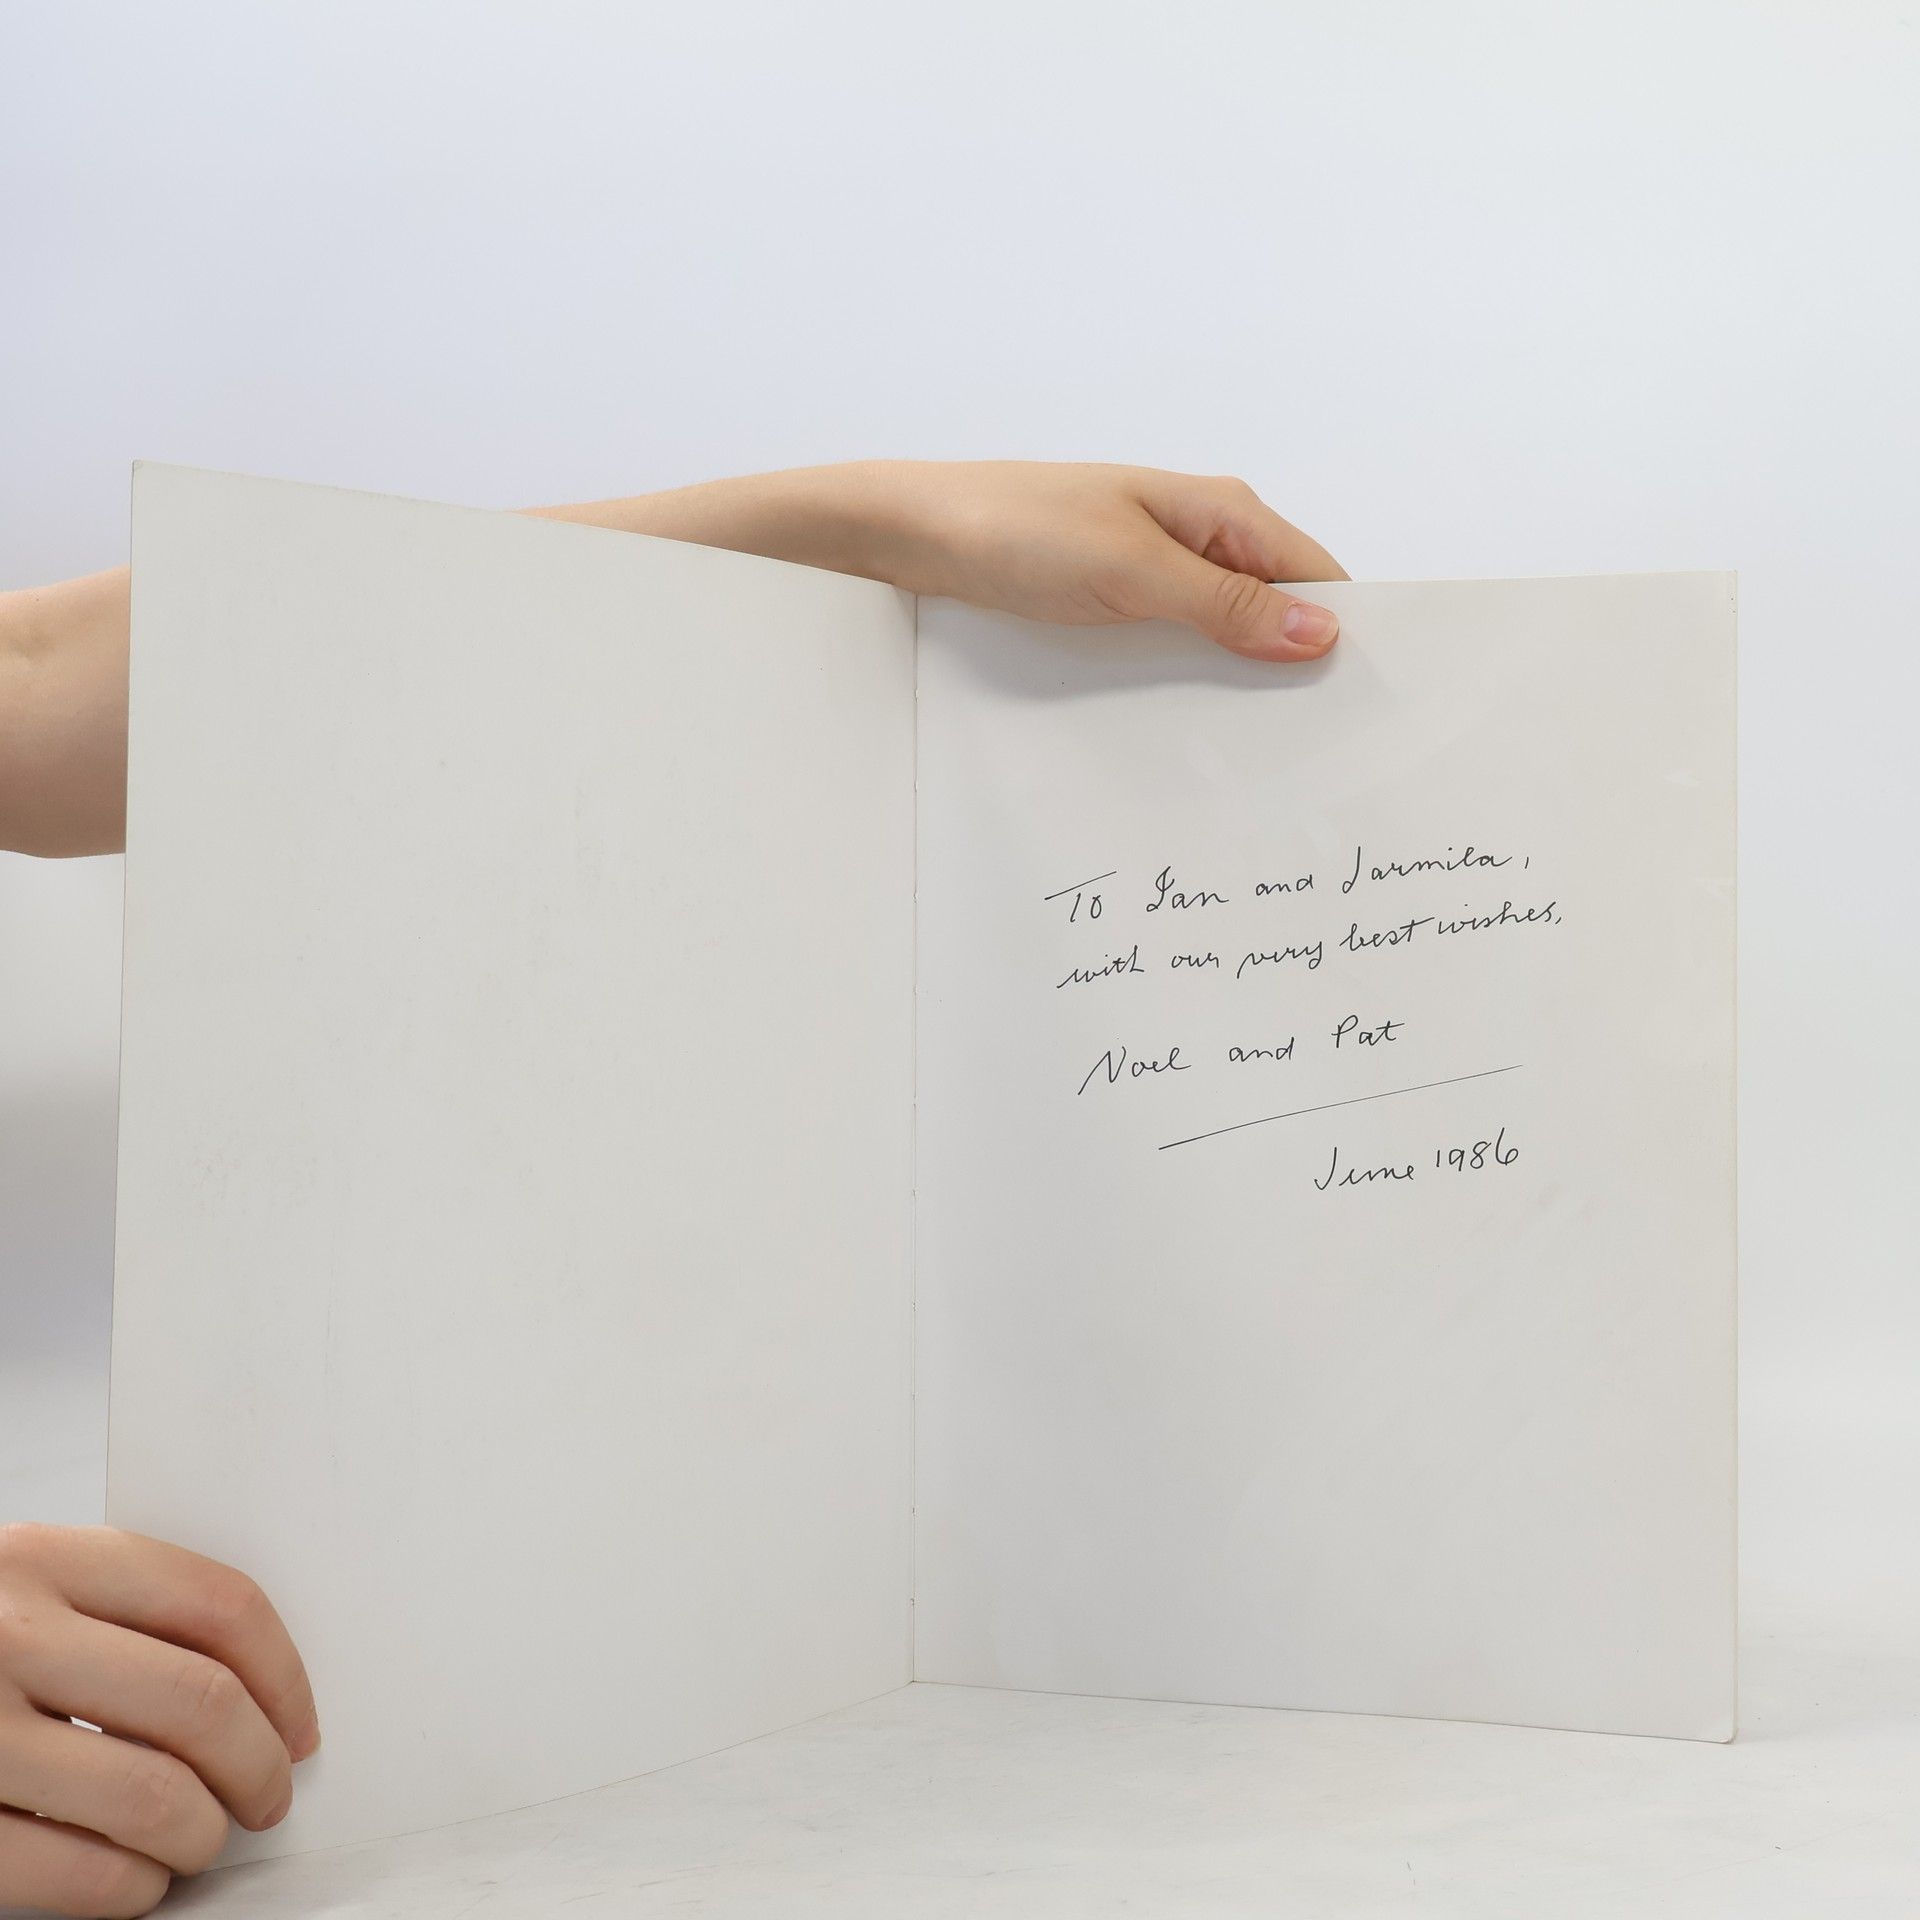 To Ian and Jarmila,
with our very best wishes,
Noel and Pat
June 1986